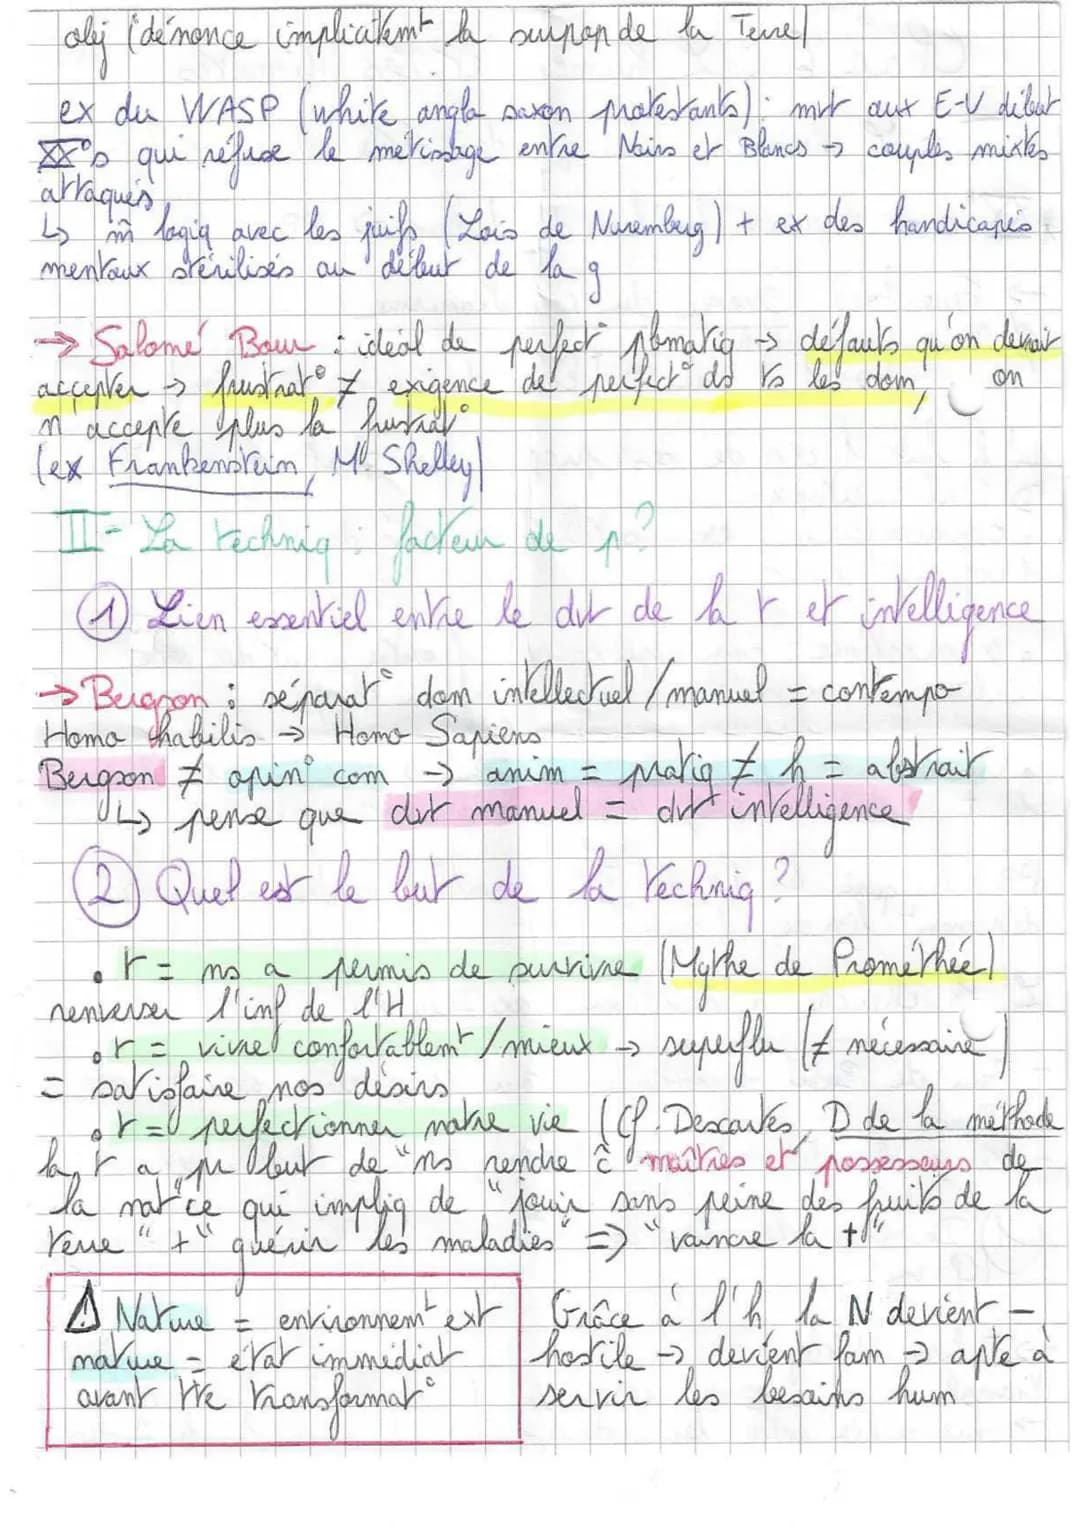 obj (dénonce implicitemt la surpop de la Terre)
ex du WASP (white anglo saxon protestants) : mvt aux E-U début
XX°s qui refuse le métissage entre Noirs et Blancs → couples mixtes
attaqués
↳ m̂ logiq avec les juifs (Lois de Nuremberg) + ex des handicapés
mentaux stérilisés au début de la g
→ Salomé Bour : idéal de perfect° pbmatiq → défauts qu'on devrait
accepter → frustrat° ≠ exigence de perfect° ds ts les dom, on
n'accepte plus la frustrat°
(ex Frankenstein, M. Shelley)
II - La techniq : facteur de p ?
① Lien essentiel entre le dvt de la t et intelligence
→ Bergson : séparat° dom intellectuel / manuel = contempo
Homo habilis → Homo Sapiens
Bergson ≠ opin° com → anim = pratiq ≠ h = abstrait
↳ pense que dvt manuel = dvt intelligence
② Quel est le but de la techniq ?
• t = ns a permis de survivre (Mythe de Prométhée)
renverser l'inf de l'H
• t = vivre confortablemt / mieux → superflu (≠ nécessaire)
= satisfaire nos désirs
• t = perfectionner notre vie (Cf. Descartes, D de la méthode
la t a pr but de "ns rendre c̄ maîtres et possesseurs de
la nat" ce qui impliq de "jouir sans peine des fruits de la
terre" + "guérir les maladies" => "vaincre la †"
⚠ Nature = environnemt ext
nature = état immédiat
avant tte transformat°
Grâce à l'h la N devient -
hostile → devient fam → apte à
servir les besoins hum